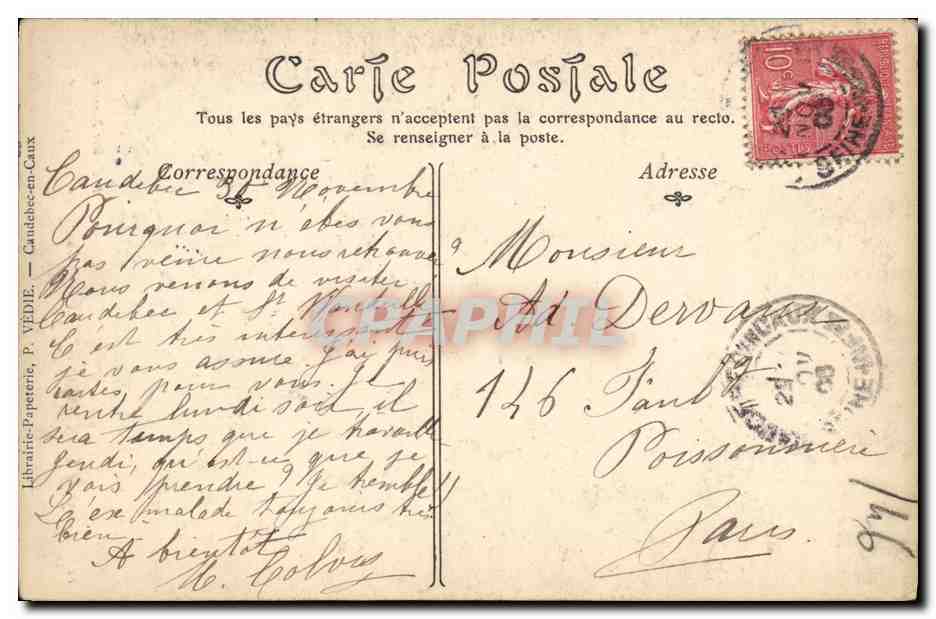 Carte Postale
Tous les pays étrangers n'acceptent pas la correspondance au recto.
Se renseigner à la poste.
Correspondance
Adresse
Caudebec 30 Novembre
Pourquoi n'êtes vous
pas venue nous retrouver ?
Nous venons de visiter
Caudebec et St Wandrille
C'est très intéressant
je vous assure. J'ai pris
cartes pour vous. Je
rentre lundi soir, il
sera temps que je travaille
jeudi, qu'est-ce que je
vais prendre ? Je tremble !!
L'ex malade toujours très
bien.
A bientôt
M.
Monsieur
Ad Dervaux
146 Faubg
Poissonnière
Paris
Librairie-Papeterie, P. VEDIE. — Caudebec-en-Caux
10c
NOV
08
SEINE
29
08
CPARPHIL